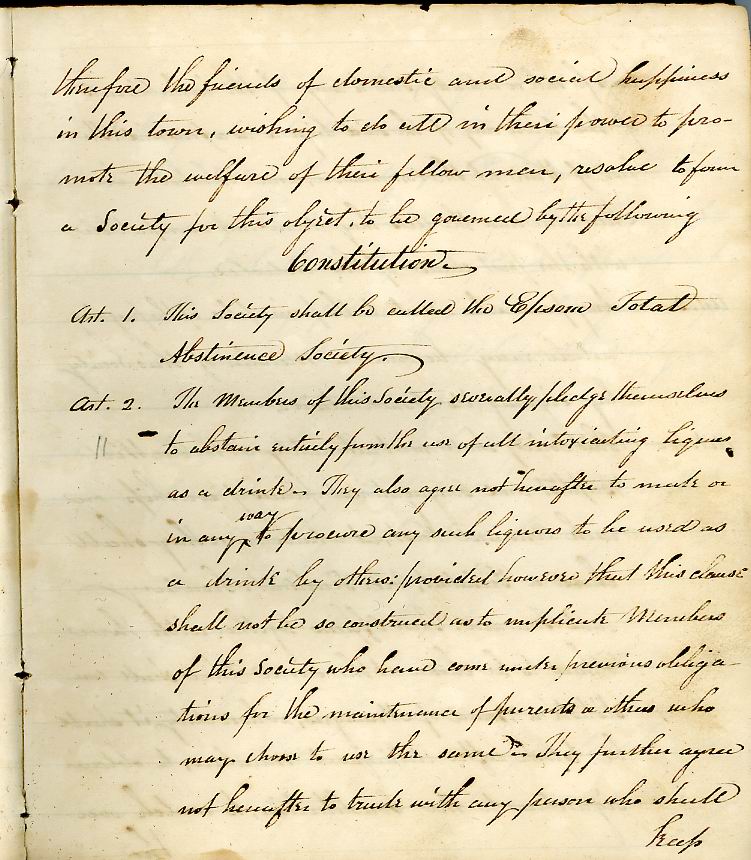 therefore the friends of domestic and social happiness
in this town, wishing to do all in their power to pro-
mote the welfare of their fellow men, resolve to form
a Society for this object, to be governed by the following
Constitution.
Art. 1. This Society shall be called the Epsom Total
Abstinence Society.
Art. 2. The Members of this Society severally pledge themselves
to abstain entirely from the use of all intoxicating liquors
as a drink. They also agree not hereafter to make or
way
in any to procure any such liquors to be used as
a drink by others: provided however that this clause
shall not be so construed as to implicate Members
of this Society who have come under previous obliga-
tions for the maintenance of parents or others who
may choose to use the same. They further agree
not hereafter to trade with any person who shall
keep